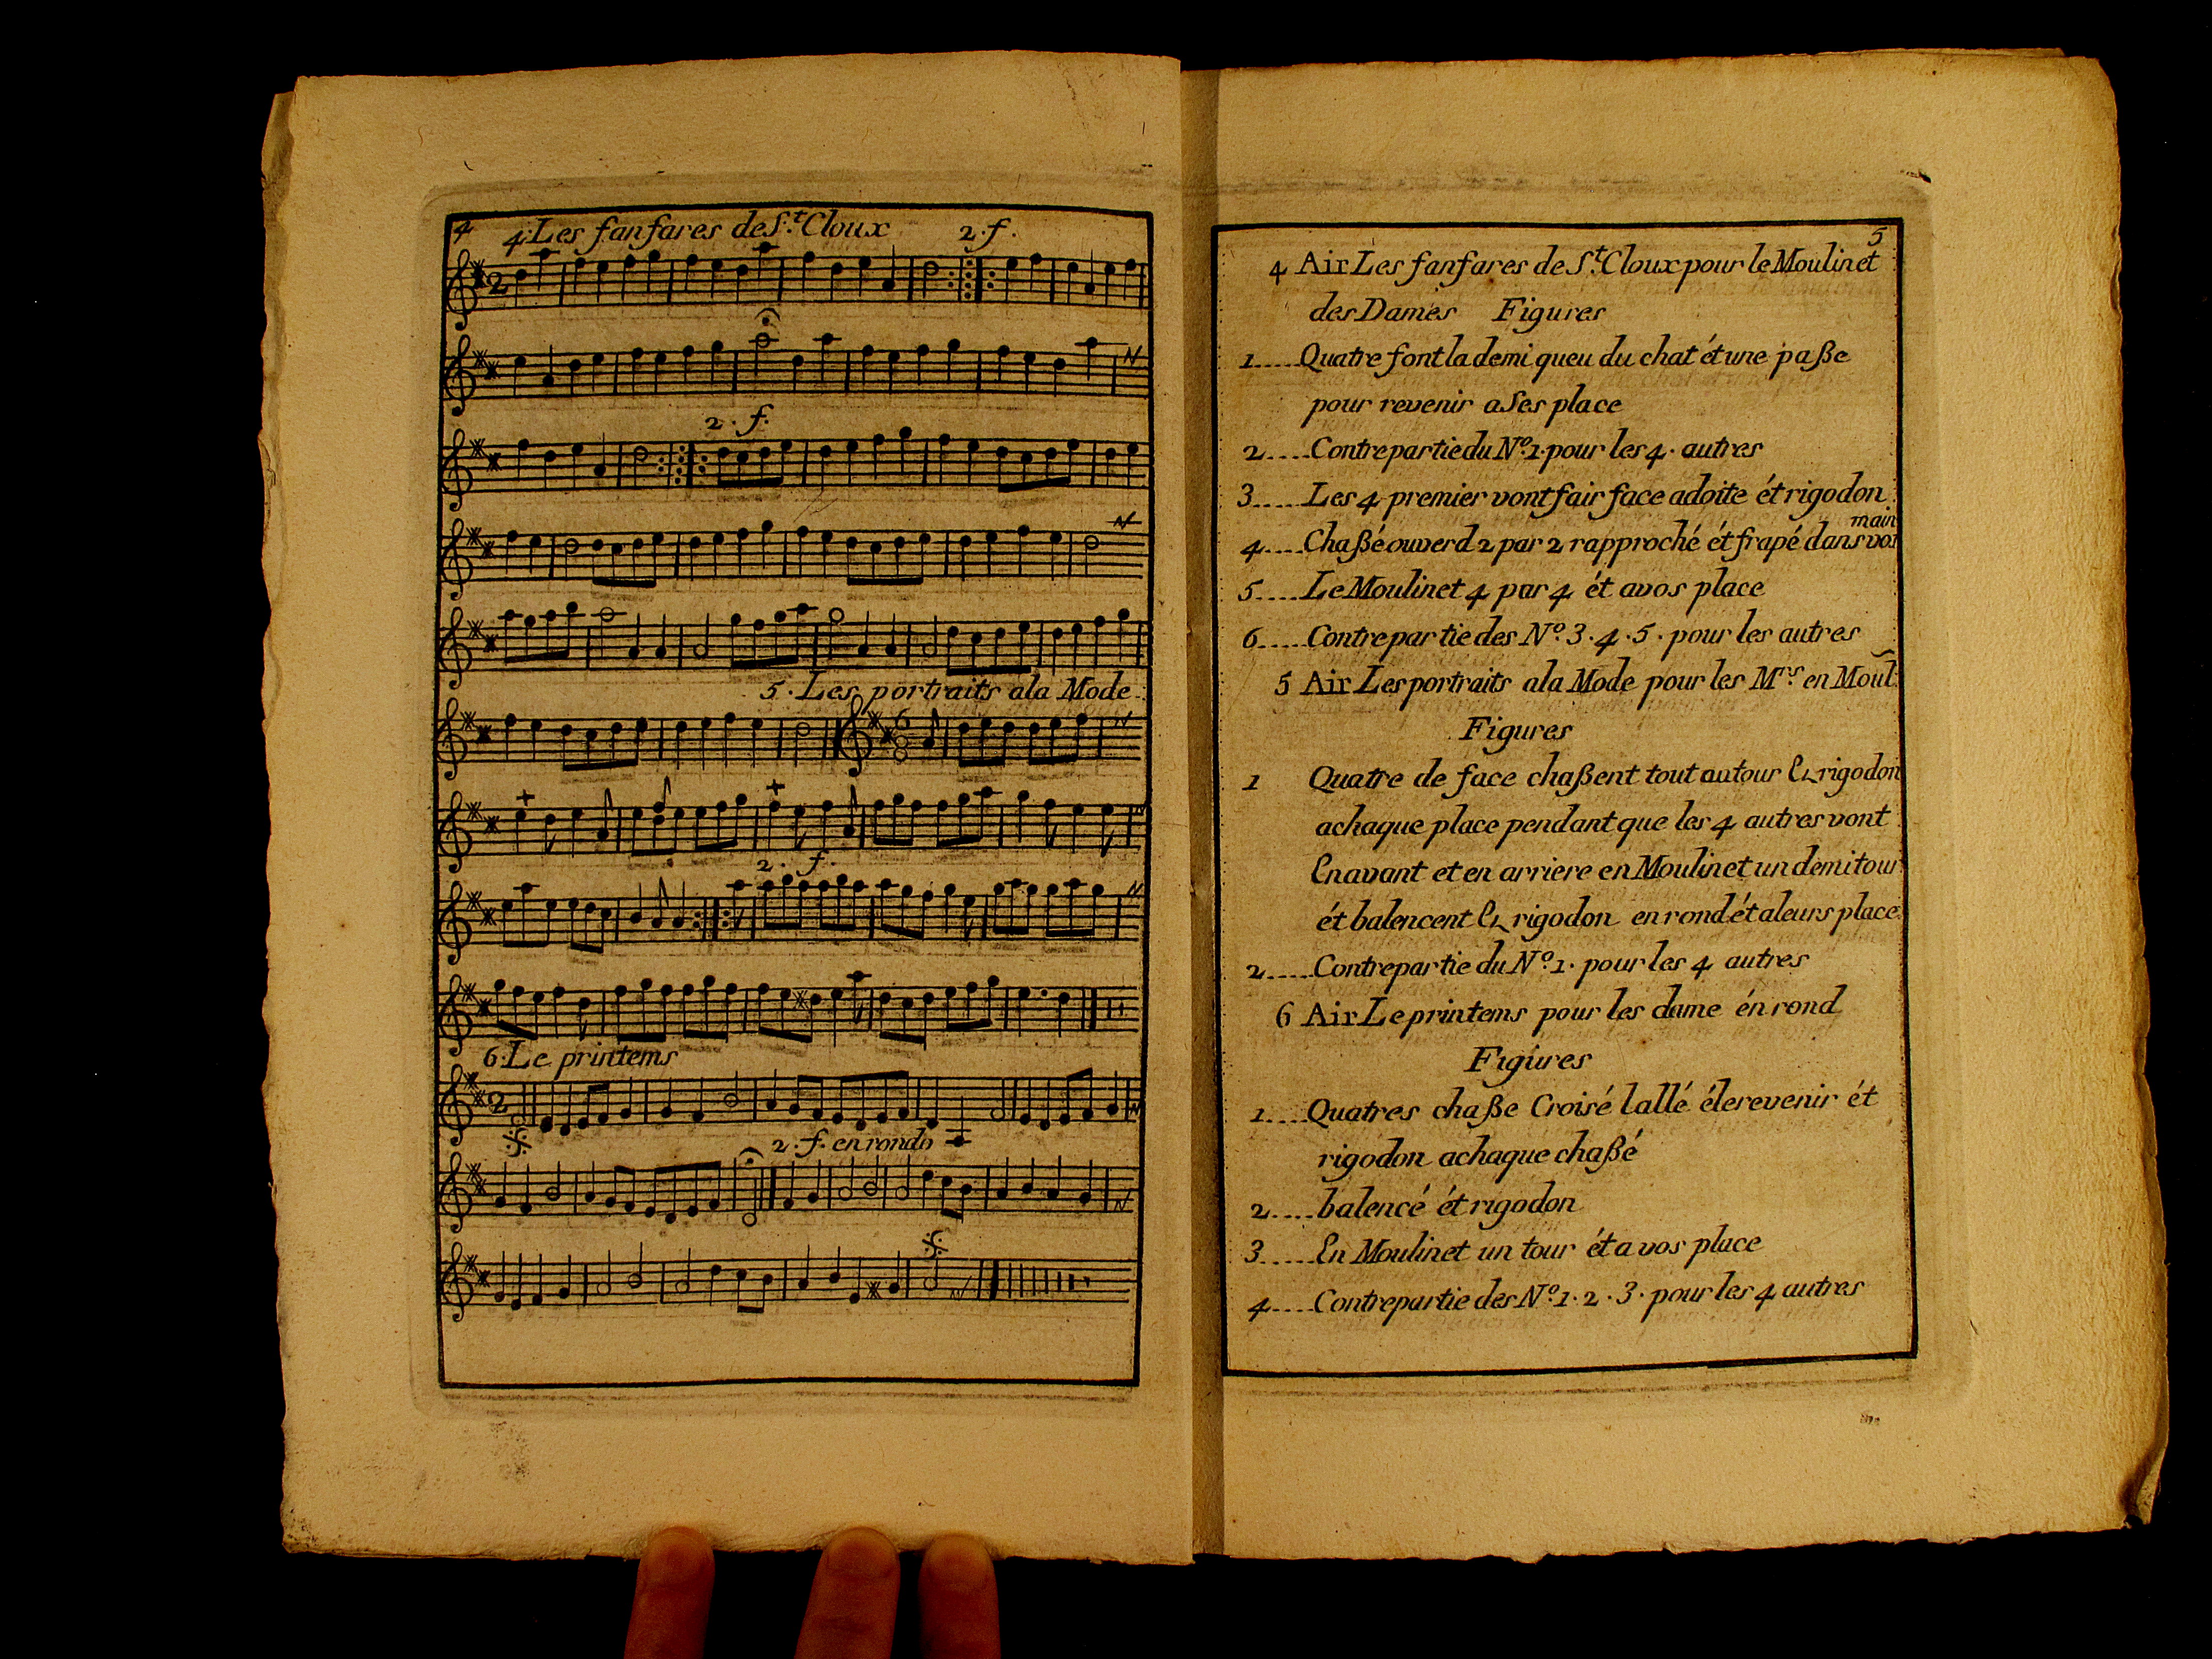 4
4. Les fanfares de S.t Cloux 2. f.
2. f.
5. Les portraits ala Mode
2. f.
6. Le printems
2. f. en rondo
5
4 Air Les fanfares de S.t Cloux pour le Moulinet
des Dames Figures
1.....Quatre font la demi queu du chat ét une paße
pour revenir a Ses place
2.....Contrepartie du N.o 1. pour les 4. autres
3.....Les 4 premier vont fair face adoite ét rigodon
main
4....Chaßé ouverd 2 par 2 rapproché ét frapé dans vos
5....Le Moulinet 4 par 4 ét avos place
6.....Contrepartie des N.o 3. 4. 5. pour les autres
5 Air Les portraits ala Mode pour les M.rs en Moul.
Figures
1 Quatre de face chaßent tout autour & rigodon
achaque place pendant que les 4 autres vont
En avant et en arriere en Moulinet un demi tour
ét balencent & rigodon en rond ét aleurs place
2.....Contrepartie du N.o 1. pour les 4 autres
6 Air Le printems pour les dame én rond
Figures
1....Quatres chaße Croisé lallé éle revenir ét
rigodon achaque chaßé
2....balencé ét rigodon
3.....En Moulinet un tour ét a vos place
4....Contrepartie des N.o 1. 2. 3. pour les 4 autres